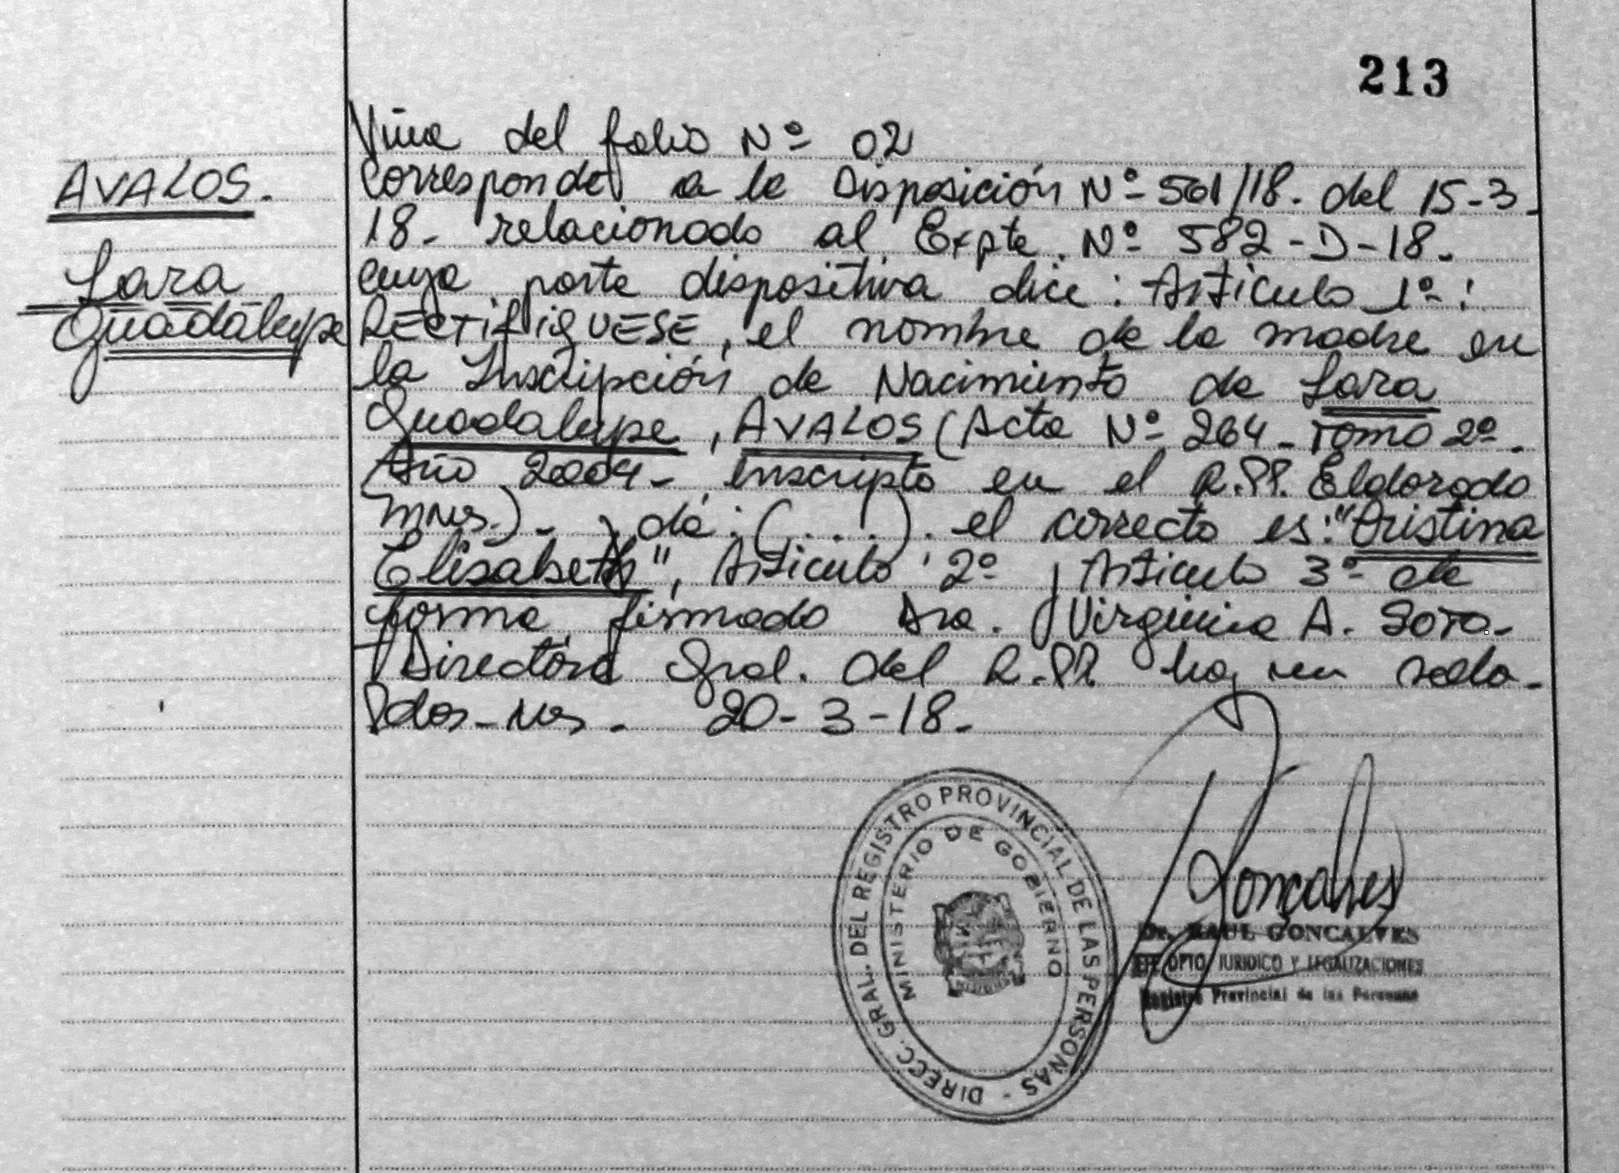 213
AVALOS.
Lara
Guadalupe
Viene del folio Nº 02
Corresponde a la Disposición Nº 561/18. del 15-3-
18- relacionado al Expte. Nº 582-D-18-
cuya parte dispositiva dice: Artículo 1º:
RECTIFIQUESE, el nombre de la madre en
la Inscripción de Nacimiento de Lara
Guadalupe, AVALOS (Acta Nº 264- Tomo 2º-
Año 2004- inscripto en el R.PP. Eldorado
Mnes.)- dé: (....). el correcto es: "Cristina
Elisabeth", Artículo 2º y Artículo 3º de
forma firmado Dra. Virginia A. SOTO-
Directora Gral. del R.PP. hay un sello-
Pdas-Mnes- 20-3-18-
DIRECC. GRAL. DEL REGISTRO PROVINCIAL DE LAS PERSONAS -
MINISTERIO DE GOBIERNO
Goncalves
Dr. RAUL GONCALVES
JEFE DPTO. JURIDICO Y LEGALIZACIONES
Registro Provincial de las Personas